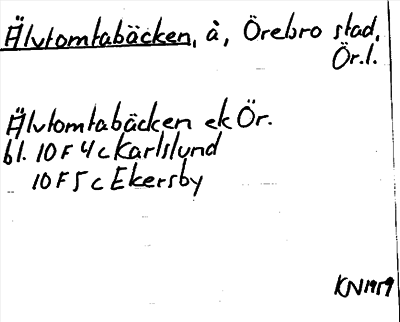 Älvtomtabäcken, å, Örebro stad,
Ör.l.
Älvtomtabäcken ek Ör.
bl. 10 F 4 c Karlslund
10 F 5 c Ekersby
KN 1959